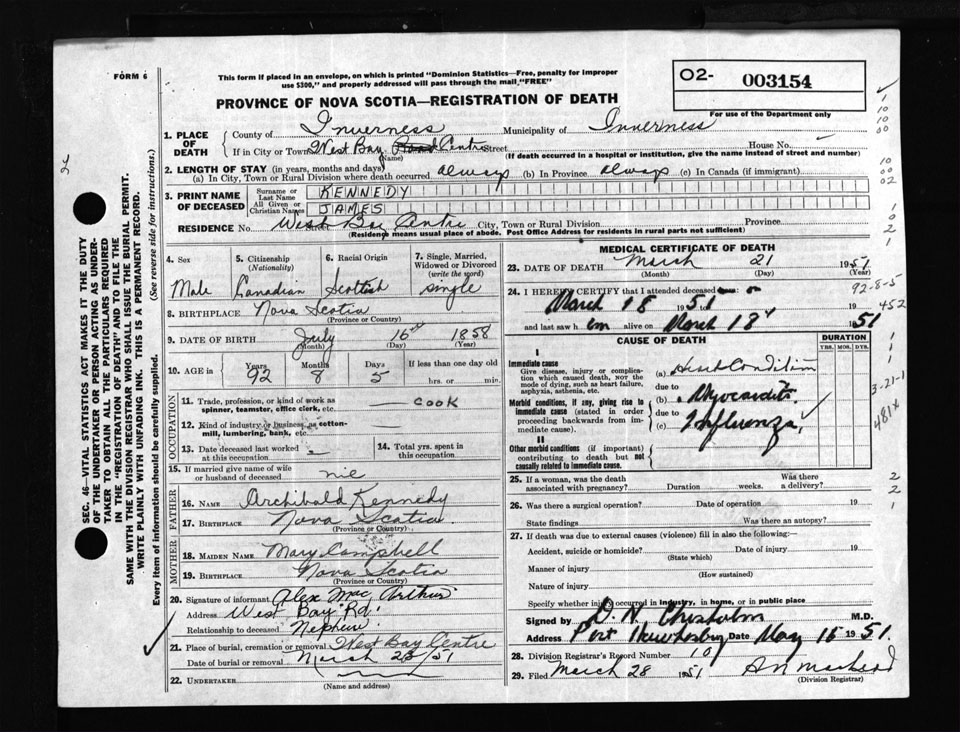 FORM 6
This form if placed in an envelope, on which is printed "Dominion Statistics—Free, penalty for improper
use $300," and properly addressed will pass through the mail "FREE"
O2- 003154
For use of the Department only
PROVINCE OF NOVA SCOTIA—REGISTRATION OF DEATH
1. PLACE OF DEATH County of Inverness Municipality of Inverness
If in City or Town West Bay Centre Street House No.
(Name) (If death occurred in a hospital or institution, give the name instead of street and number)
2. LENGTH OF STAY (in years, months and days)
(a) In City, Town or Rural Division where death occurred always (b) In Province always (c) In Canada (if immigrant)
3. PRINT NAME OF DECEASED Surname or Last Name KENNEDY
All Given or Christian Names JAMES
RESIDENCE No. West Bay Centre City, Town or Rural Division Province
(Residence means usual place of abode. Post Office Address for residents in rural parts not sufficient)
4. Sex Male
5. Citizenship (Nationality) Canadian
6. Racial Origin Scottish
7. Single, Married, Widowed or Divorced (write the word) single
8. BIRTHPLACE Nova Scotia
(Province or Country)
9. DATE OF BIRTH July 16 1858
(Month) (Day) (Year)
10. AGE in Years Months Days If less than one day old
92 8 5 hrs. or min.
OCCUPATION
11. Trade, profession, or kind of work as spinner, teamster, office clerk, etc. cook
12. Kind of industry or business, as cotton-mill, lumbering, bank, etc.
13. Date deceased last worked at this occupation
14. Total yrs. spent in this occupation
15. If married give name of wife or husband of deceased nil
FATHER
16. NAME Archibald Kennedy
17. BIRTHPLACE Nova Scotia
(Province or Country)
MOTHER
18. MAIDEN NAME Mary Campbell
19. BIRTHPLACE Nova Scotia
(Province or Country)
20. Signature of informant Alex Mac Arthur
Address West Bay Rd.
Relationship to deceased Nephew
21. Place of burial, cremation or removal West Bay Centre
Date of burial or removal March 23/51
22. UNDERTAKER
(Name and address)
MEDICAL CERTIFICATE OF DEATH
23. DATE OF DEATH March 21 1951
(Month) (Day) (Year)
24. I HEREBY CERTIFY that I attended deceased
March 18 1951
and last saw him alive on March 18 1951
CAUSE OF DEATH
DURATION
YRS. MOS. DYS.
I
Immediate cause
Give disease, injury or complication which caused death, NOT the mode of dying, such as heart failure, asphyxia, asthenia, etc.
(a) Heart Condition
due to
Morbid conditions, if any, giving rise to immediate cause (stated in order proceeding backwards from immediate cause).
(b) Myocarditis
due to
(c) Influenza
II
Other morbid conditions (if important) contributing to death but not causally related to immediate cause.
25. If a woman, was the death associated with pregnancy? Duration weeks. Was there a delivery?
26. Was there a surgical operation? Date of operation 19
State findings Was there an autopsy?
27. If death was due to external causes (violence) fill in also the following:—
Accident, suicide or homicide? Date of injury 19
(State which)
Manner of injury
(How sustained)
Nature of injury
Specify whether injury occurred in industry, in home, or in public place
Signed by D N Chisholm M.D.
Address Port Hawkesbury Date May 15 1951.
28. Division Registrar's Record Number 10
29. Filed March 28 1951
(Division Registrar)
SEC. 46—VITAL STATISTICS ACT MAKES IT THE DUTY
OF THE UNDERTAKER OR PERSON ACTING AS UNDER-
TAKER TO OBTAIN ALL THE PARTICULARS REQUIRED
IN THE "REGISTRATION OF DEATH" AND TO FILE THE
SAME WITH THE DIVISION REGISTRAR WHO SHALL ISSUE THE BURIAL PERMIT.
WRITE PLAINLY WITH UNFADING INK. THIS IS A PERMANENT RECORD.
Every item of information should be carefully supplied. (See reverse side for instructions.)
92-8-5
452
3-21-1
481x